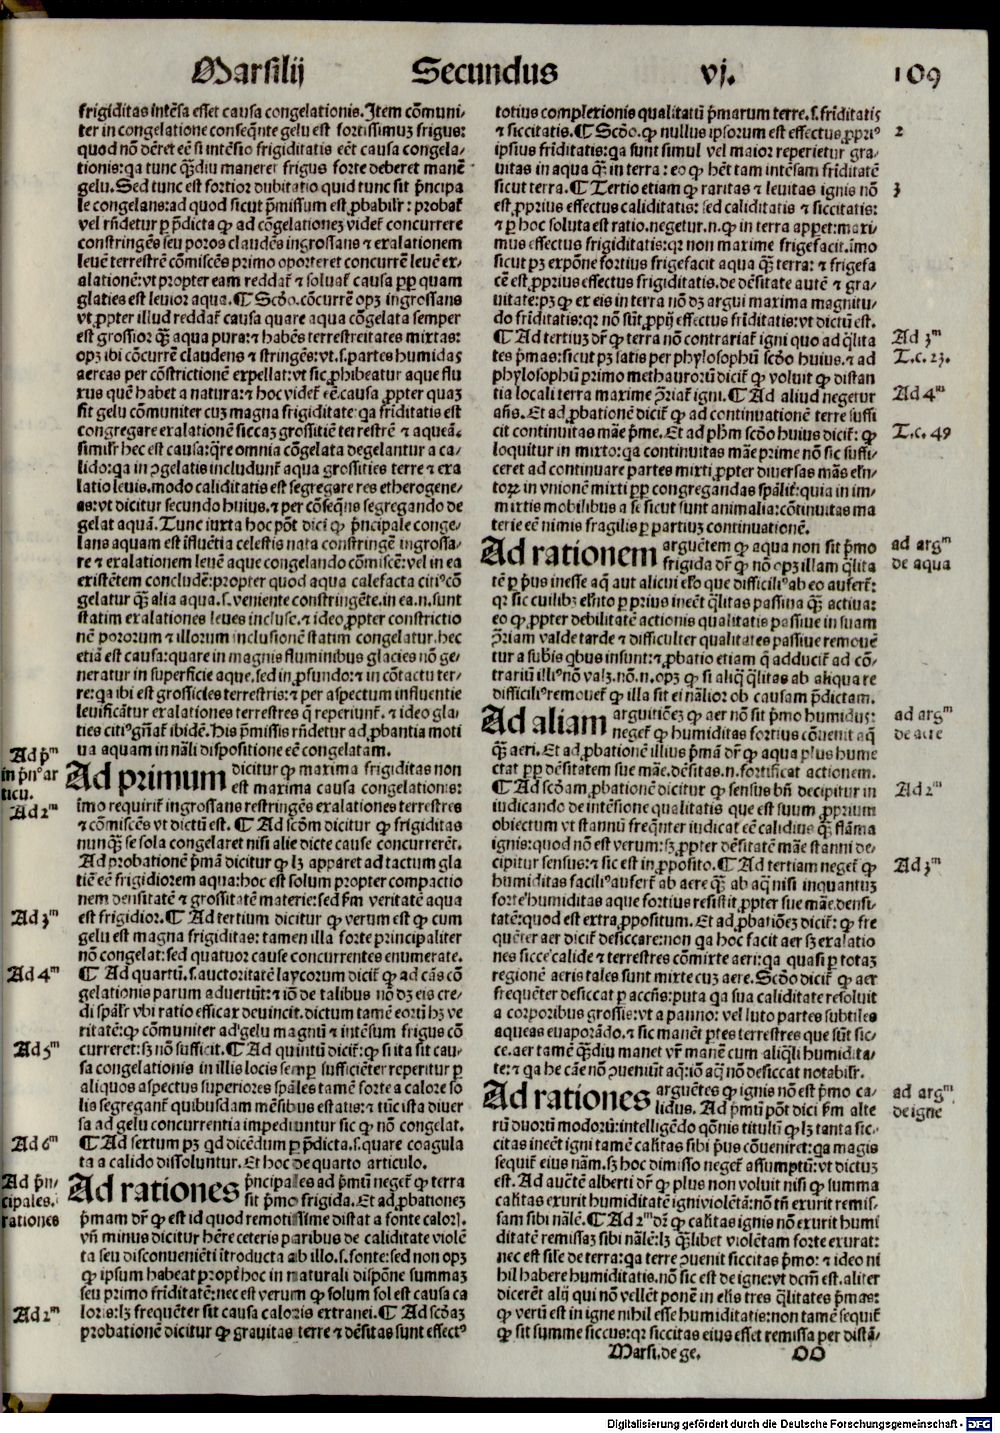 Marsilij Secundus vj. 109
frigiditas intẽsa esset causa congelationis. Item cõmuni/
ter in congelatione conseq̃nte gelu est fortissimuʒ frigus:
quod nõ dẽret eẽ si intẽsio frigiditatis eẽt causa congela/
tionis: qa tunc q̃ʒdiu maneret frigus forte deberet manẽ
gelu. Sed tunc est fortior dubitatio quid tunc sit p̃ncipa
le congelans: ad quod sicut p̃missum est ꝓbabilr̃: probat̃
vel rñdetur ꝑ p̃dicta ꝙ ad cõgelationeʒ videt̃ concurrere
constringẽs seu poros claudẽs ingrossans ⁊ exalationem
leuẽ terrestrẽ cõmiscẽs primo oporteret concurrẽ leuẽ ex/
alationẽ: vt propter eam reddat̃ ⁊ soluat̃ causa ꝑp quam
glaties est leuior aqua. ¶ Scðo. cõcurrẽ opʒ ingrossans
vt ꝓpter illud reddat̃ causa quare aqua cõgelata semper
est grossior q̃ʒ aqua pura: ⁊ habẽs terrestreitates mixtas:
opʒ ibi cõcurrẽ claudens ⁊ stringẽs: vt .s. partes humidas
aereas per cõstrictionẽ expellat: vt sic ꝓhibeatur aque flu
xus quẽ habet a natura: ⁊ hoc videt̃ eẽ causa ꝓpter quaʒ
sit gelu cõmuniter cuʒ magna frigiditate: qa friditatis est
congregare exalationẽ siccaʒ grossitiẽ terrestrẽ ⁊ aqueã.
similr̃ hec est causa: q̃re omnia cõgelata degelantur a ca/
lido: qa in ꝯgelatis includunt̃ aqua grossities terre ⁊ exa
latio leuis. modo caliditatis est segregare res etherogene/
as: vt dicitur secundo huius. ⁊ per cõseq̃ns segregando de
gelat aquã. Tunc iuxta hoc põt dici ꝙ p̃ncipale conge/
lans aquam est iflu̇ẽtia celestis nata constringẽ ingrossa/
re ⁊ exalationem leuẽ aque congelando cõmiscẽ: vel in ea
existẽtem concludẽ: propter quod aqua calefacta citi⁹ cõ
gelatur q̃ʒ alia aqua .s. veniente constringẽte. in ea .n. sunt
statim exalationes leues incluse. ⁊ ideo ꝓpter constrictio
nẽ pororum ⁊ illorum inclusionẽ statim congelatur. hec
etiã est causa: quare in magnis fluminibus glacies nõ ge/
neratur in superficie aque. sed in ꝓfundo: ⁊ in cõtactu ter/
re: qa ibi est grossicies terrestris: ⁊ per aspectum influentie
leuificãtur exalationes terrestres q̃ reperiunt̃. ⁊ ideo gla/
cies citi⁹ gñat̃ ibidẽ. His p̃missis rñdetur ad ꝓbantia moti
ua aquam in nãli dispositione eẽ congelatam.
Ad primum dicitur ꝙ maxima frigiditas non
est maxima causa congelationis:
imo requirit̃ ingrossans restringẽs exalationes terrestres
⁊ cõmiscẽs vt dictũ est. ¶ Ad scðm dicitur ꝙ frigiditas
nunq̃ʒ se sola congelaret nisi alie dicte cause concurrerẽt.
Ad probationẽ p̃mã dicitur ꝙ lʒ apparet ad tactum gla
tiẽ eẽ frigidiorem aqua: hoc est solum propter compactio
nem densitatẽ ⁊ grossitatẽ materie: sed ẽm veritatẽ aqua
est frigidior. ¶ Ad tertium dicitur ꝙ verum est ꝙ cum
gelu est magna frigiditas: tamen illa forte principaliter
nõ congelat: sed quatuor cause concurrentes enumerate.
¶ Ad quartũ .s. auctoritatẽ laycorum dicit̃ ꝙ ad cãs cõ
gelationis parum aduertũt: ⁊ iõ de talibus nõ dʒ eis cre/
di spãlr̃ vbi ratio efficax deuincit. dictum tamẽ eorũ hʒ ve
ritatẽ: ꝙ cõmuniter ad gelu magnũ ⁊ intẽsum frigus cõ
curreret: sʒ nõ sufficit. ¶ Ad quintũ dicit̃: ꝙ si ita sit cau/
sa congelationis in illis locis semꝑ sufficiẽter reperitur ꝑ
aliquos aspectus superiores spãles tamẽ forte a calore so
lis segregant̃ quibusdam mẽsibus estatis: ⁊ tũc ista diuer
sa ad gelu concurrentia impediuntur sic ꝙ nõ congelat.
¶ Ad sextum pʒ qd dicẽdum ꝑ p̃dicta .s. quare coagula
ta a calido dissoluntur. Et hoc de quarto articulo.
Ad rationes p̃ncipales ad p̃mũ neget̃ ꝙ terra
sit p̃mo frigida. Et ad ꝓbationeʒ
p̃mam dr̃ ꝙ est id quod remotissime distat a fonte caloris.
vñ minus dicitur hẽre ceteris paribus de caliditate violẽ
ta seu disconueniẽti ĩtroducta ab illo .s. fonte: sed non opʒ
ꝙ ipsum habeat propt̃ hoc in naturali dispõne summaʒ
seu primo friditatẽ: nec est verum ꝙ solum sol est causa ca
loris: lʒ frequẽter sit causa caloris extranei. ¶ Ad scðaʒ
probationẽ dicitur ꝙ grauitas terre ⁊ dẽsitas sunt effect⁹
Ad p̃m
in p̃n⁹ ar
ticu.
Ad 2m
Ad 3m
Ad 4m
Ad 5m
Ad 6m
Ad p̃n/
cipales.
rationes
Ad 2m
totius complexionis qualitatũ p̃marum terre .s. friditatis
⁊ siccitatis. ¶ Scðo. ꝙ nullus ipsorum est effectus ꝓpri⁹
ipsius friditatis: qa sunt simul vel maior reperietur gra/
uitas in aqua q̃ʒ in terra: eo ꝙ hẽt tam intẽsam friditatẽ
sicut terra. ¶ Tertio etiam ꝙ raritas ⁊ leuitas ignis nõ
est ꝓprius effectus caliditatis: sed caliditatis ⁊ siccitatis:
⁊ ꝑ hoc soluta est ratio. negetur .n. ꝙ in terra apparet: maxi
mus effectus frigiditatis: qr non maxime frigefacit. imo
sicut pʒ expõne fortius frigefacit aqua q̃ʒ terra: ⁊ frigefa
cẽ est ꝓprius effectus frigiditatis. de dẽsitate autẽ ⁊ gra/
uitate: pʒ ꝙ ex eis in terra nõ dʒ argui maxima magnitu/
do friditatis: qr nõ sũt ꝓpij effectus friditatis: vt dictũ est.
¶ Ad tertiuʒ dr̃ ꝙ terra nõ contrariat̃ igni quo ad q̃lita
tes p̃mas: sicut pʒ satis per phylosophũ scðo huius. ⁊ ad
phylosophũ primo methaurorũ dicit̃ ꝙ voluit ꝙ distan
tia locali terra maxime ꝓ̃riat̃ igni. ¶ Ad aliud negetur
añs. Et ad ꝓbationẽ dicit̃ ꝙ ad continuationẽ terre suffi
cit continuitas mãe p̃me. Et ad pħm scðo huius dicit̃: ꝙ
loquitur in mixto: qa continuitas mãe prime nõ sic suffi/
ceret ad continuare partes mixti ꝓpter diuersas mãs elñ/
toꝝ in vnionẽ mixti ꝑp congregandas spãlit̃: quia in im/
mixtis mobilibus a se sicut sunt animalia: cõtinuitas ma
terie eẽt nimis fragilis ꝑ partiuʒ continuationẽ.
Ad rationem arguẽtem ꝙ aqua non sit p̃mo
frigida dr̃ ꝙ nõ opʒ illam q̃lita
tẽ ꝑ p̃us inesse aq̃ aut alicui elño que difficili⁹ ab eo aufert̃:
qr sic cuilibʒ elñto ꝑ prius ineẽt q̃litas passiua q̃ʒ actiua:
eo ꝙ ꝓpter debilitatẽ actionis qualitatis passiue in suam
ꝓ̃riam valde tarde ⁊ difficulter qualitates passiue remouẽ
tur a subis qbus insunt: ⁊ ꝓbatio etiam q̃ adducit̃ ad cõ/
trariũ illi⁹ nõ valʒ. nõ .n. opʒ ꝙ si aliq̃ q̃litas ab aliqua re
difficili⁹ remouet̃ ꝙ illa sit ei nãlior ob causam p̃dictam.
Ad aliam arguitiõeʒ ꝙ aer nõ sit p̃mo humidus:
neget̃ ꝙ humiditas fortius cõuenit aq̃
q̃ʒ aeri. Et ad ꝓbationẽ illius p̃mã dr̃ ꝙ aqua plus hume
ctat ꝑp dẽsitatem sue mãe. dẽsitas .n. fortificat actionem.
¶ Ad scðam ꝓbationẽ dicitur ꝙ sensus bñ decipitur in
iudicando de intẽsione qualitatis que est suum ꝓprium
obiectum vt stannũ freq̃nter iudicat eẽ calidius q̃ʒ flãma
ignis: quod nõ est verum: sʒ ꝓpter dẽsitatẽ mãe stanni de/
cipitur sensus: ⁊ sic est in ꝓposito. ¶ Ad tertiam neget̃ ꝙ
humiditas facili⁹ aufert̃ ab aere q̃ʒ ab aq̃ nisi inquantuʒ
forte humiditas aque fortius resistit ꝓpter sue mãe densi/
tatẽ: quod est extra ꝓpositum. Et ad ꝓbatiõeʒ dicit̃: ꝙ fre
quẽter aer dicit̃ desiccare: non qa hoc facit aer sʒ exalatio
nes sicce calide ⁊ terrestres cõmixte aeri: qa quasi ꝑ totaʒ
regionẽ aeris tales sunt mixte cuʒ aere. Scðo dicit̃ ꝙ aer
frequẽter desiccat ꝑ accñs: puta qa sua caliditate resoluit
a corporibus grossis: vt a panno: vel luto partes subtiles
aqueas euaporãdo. ⁊ sic manẽt ꝑtes terrestres que sũt sic/
ce. aer tamẽ q̃ʒdiu manet vr̃ manẽ cum aliq̃li humidita/
te: ⁊ qa he cãe nõ ꝯueniũt aq̃: iõ aq̃ nõ desiccat notabilr̃.
Ad rationes arguẽtes ꝙ ignis nõ est p̃mo ca/
lidus. Ad p̃mũ põt dici ẽm alte
rũ duorũ modorũ: intelligẽdo qõnis titulũ ꝙ lʒ tanta sic/
citas ineẽt igni tamẽ calitas sibi p̃us cõueniret: qa magis
sequit̃ eius nãm. sʒ hoc dimisso neget̃ assumptũ: vt dictuʒ
est. Ad auẽtẽ alberti dr̃ ꝙ plus non voluit nisi ꝙ summa
calitas exurit humiditatẽ igni violẽtã: nõ tñ exurit remis/
sam sibi nãlẽ. ¶ Ad 2m dr̃ ꝙ calitas ignis nõ exurit humi
ditatẽ remissaʒ sibi nãlẽ: lʒ q̃ʒlibet violẽtam forte exurat:
nec est sil̃e de terra: qa terre ꝯuenit siccitas p̃mo: ⁊ ideo ni
hil habere humiditatis. nõ sic est de igne: vt dcm̃ est. aliter
dicerẽt alij qui nõ vellẽt ponẽ in elis tres q̃litates p̃mas:
ꝙ verũ est in igne nihil esse humiditatis: non tamẽ sequit̃
ꝙ sit summe siccus: qr siccitas eius esset remissa per distã/
2
3
Ad 3m
T.c. 23.
Ad 4m
T.c. 49
ad argm
de aqua
ad argm
de aere
Ad 2m
Ad 3m
ad argm
de igne
Marsi. de ge. OO
Digitalisierung gefördert durch die Deutsche Forschungsgemeinschaft - DFG